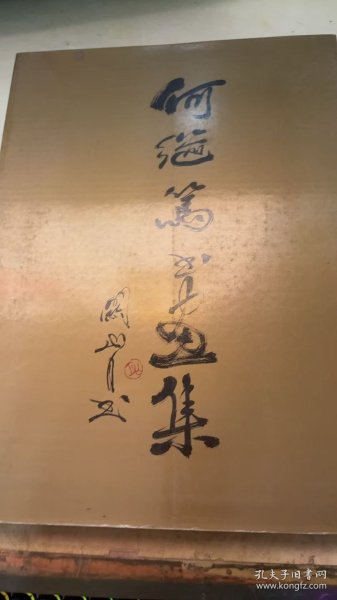 何继篤书画集
關山月书
孔夫子旧书网
www.kongfz.com